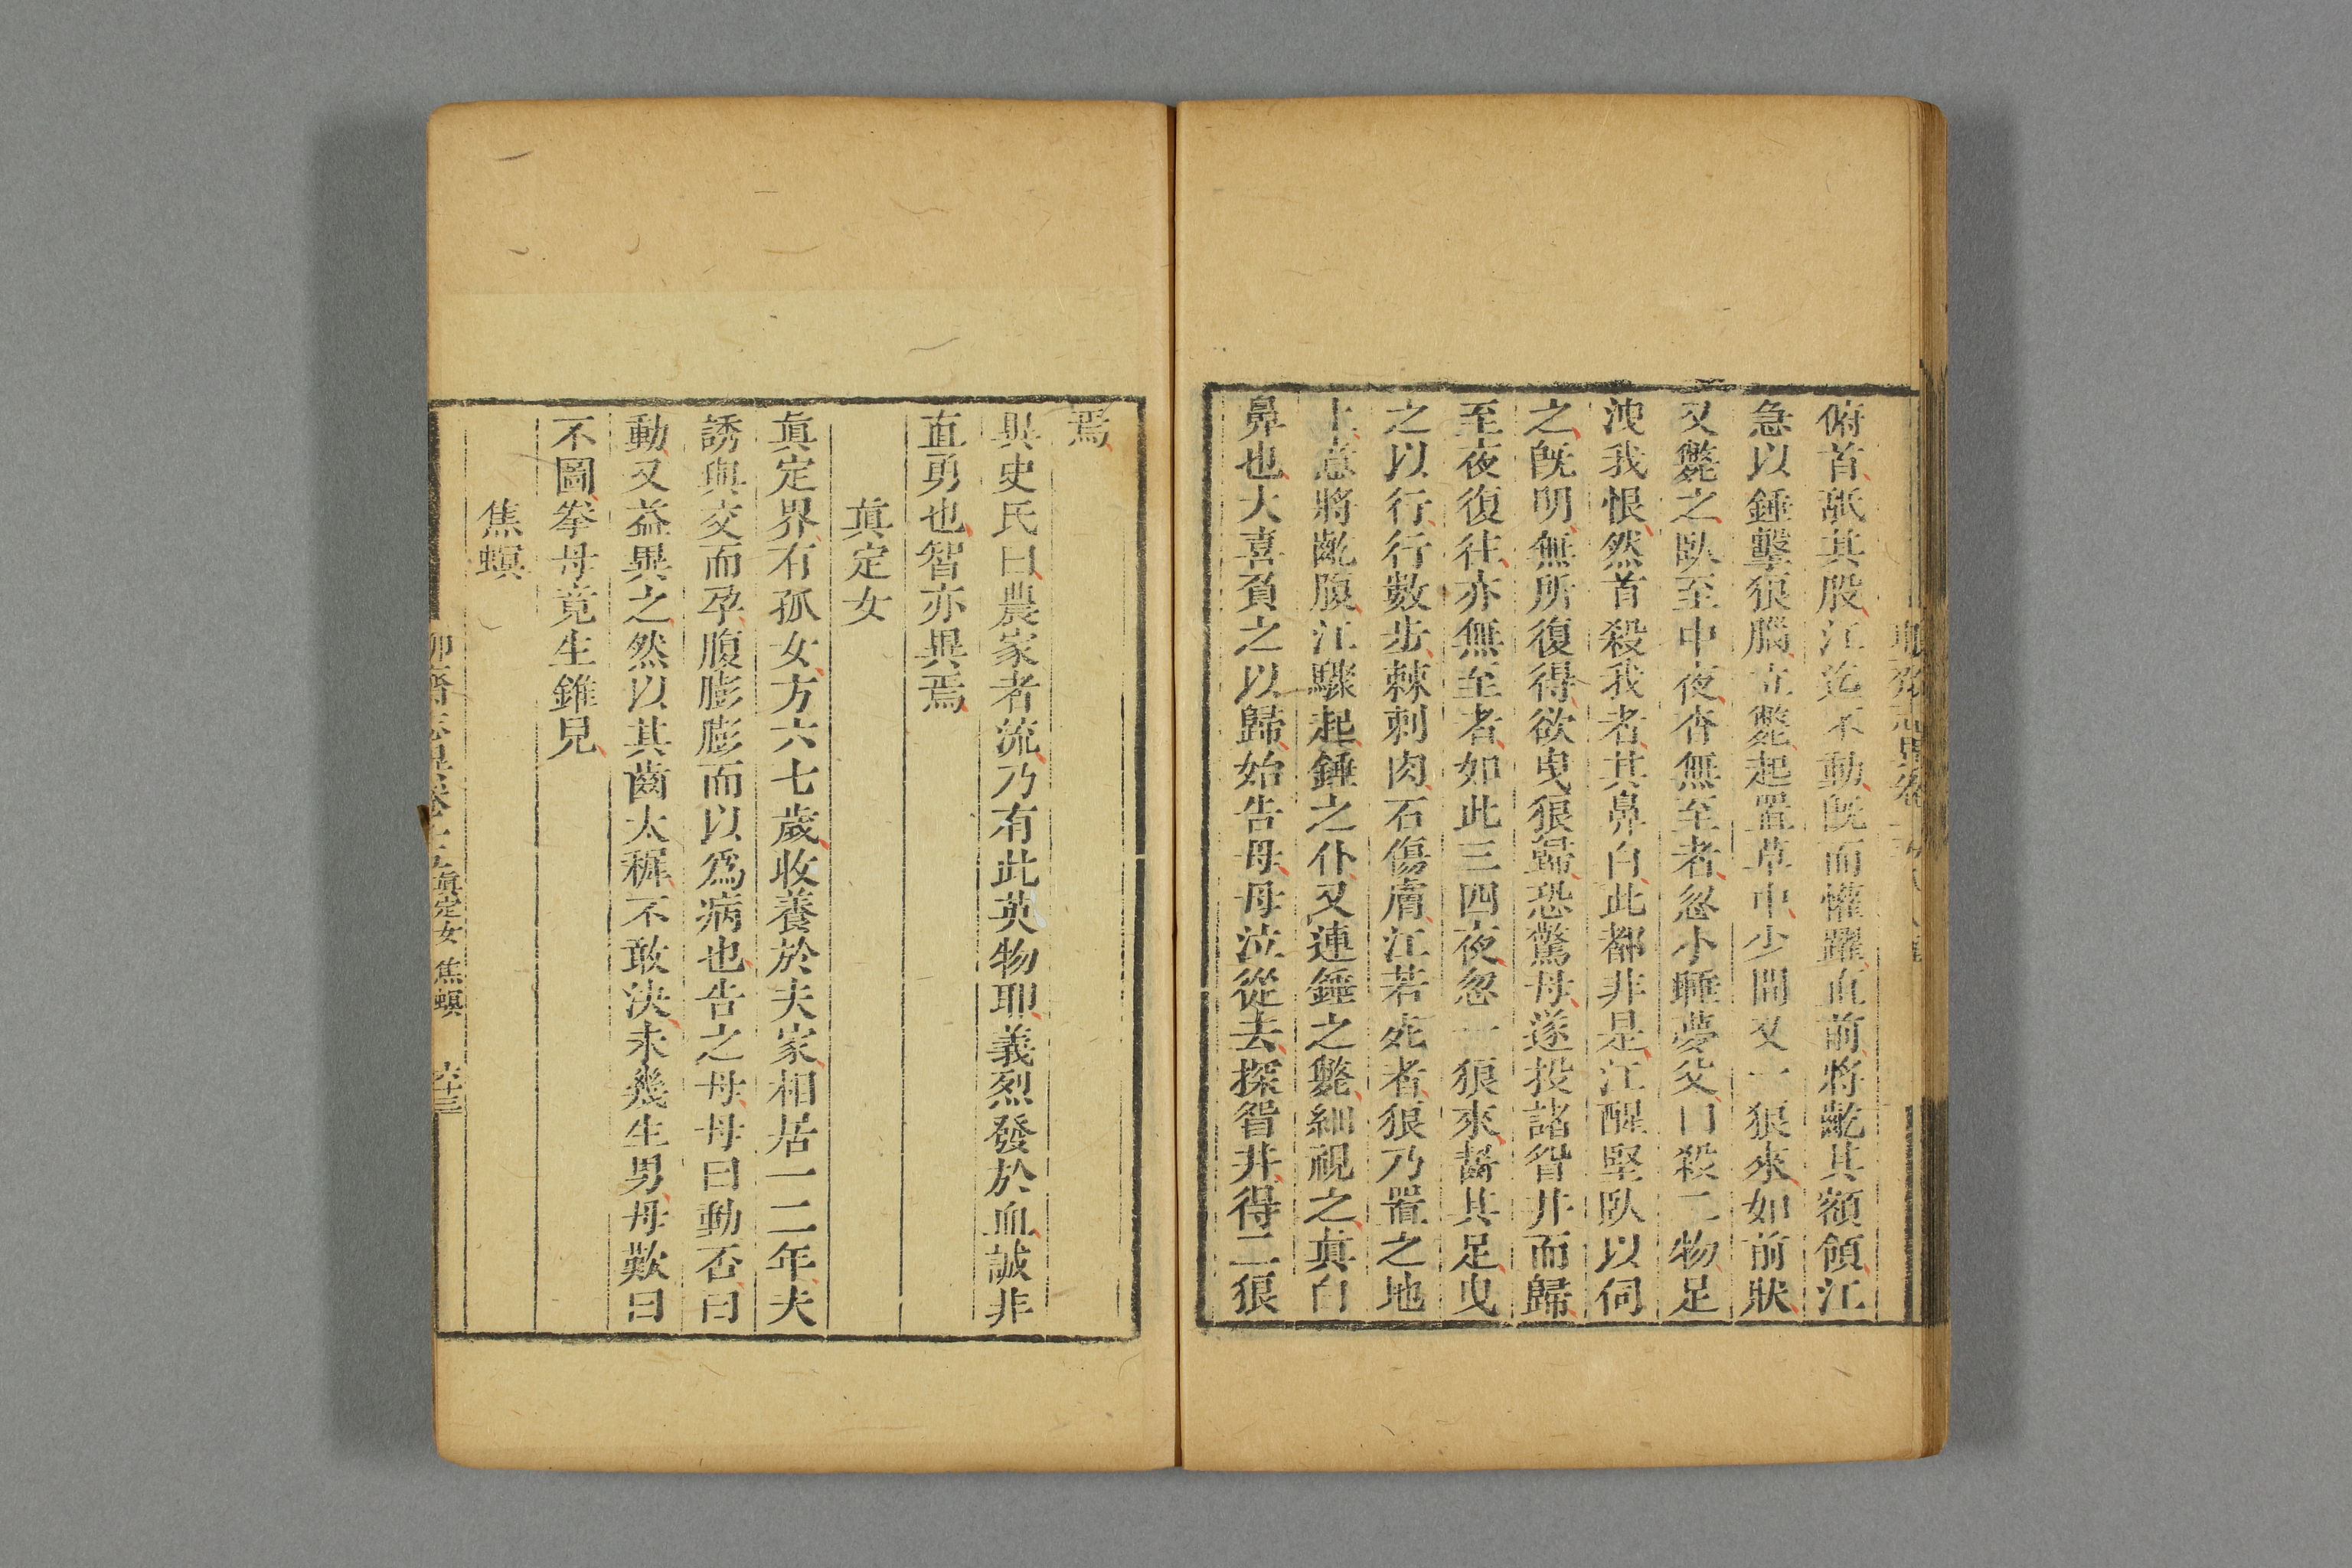 俯首舐其股江迄不動既而懽躍直前將齕其額領江
急以錘擊狼腦立斃起置草中少間又一狼來如前狀
又斃之臥至中夜杳無至者忽小睡夢父曰殺二物足
洩我恨然首殺我者其鼻白此都非是江醒堅臥以伺
之既明無所復得欲曳狼歸恐驚母遂投諸眢井而歸
至夜復往亦無至者如此三四夜忽一狼來嚙其足曳
之以行行數步棘刺肉石傷膚江若死者狼乃置之地
上意將齕腹江驟起錘之仆又連錘之斃細視之真白
鼻也大喜負之以歸始告母母泣從去探眢井得二狼
焉
異史氏曰農家者流乃有此英物耶義烈發於血誠非
直勇也智亦異焉
真定女
真定界有孤女方六七歲收養於夫家相居一二年夫
誘與交而孕腹膨膨而以爲病也告之母母曰動否曰
動又益異之然以其齒太穉不敢決未幾生男母歎曰
不圖拳母竟生錐兒
焦螟
聊齋志異卷十五真定女 焦螟 六十三